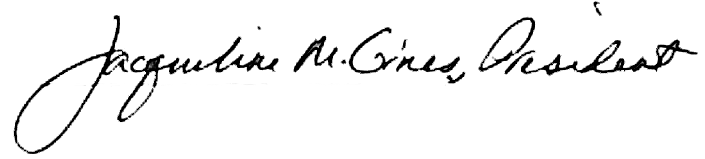 Jacqueline M. Gines, President